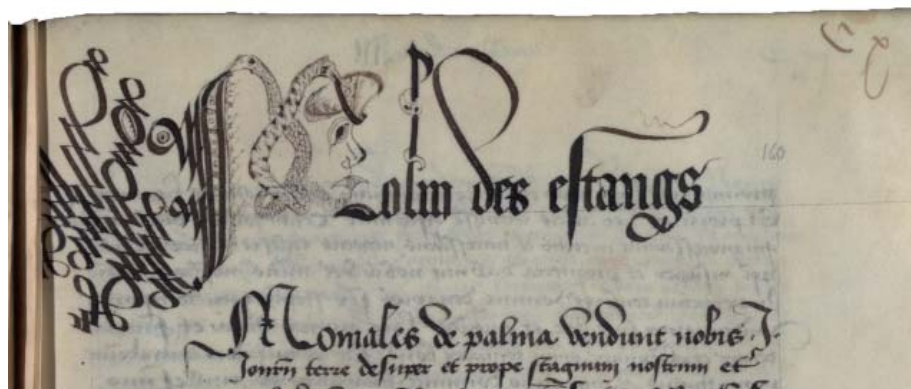 160
Molin des estangs
Moniales de palma vendunt nobis .I.
terre desuper et prope stagnum nostrum et